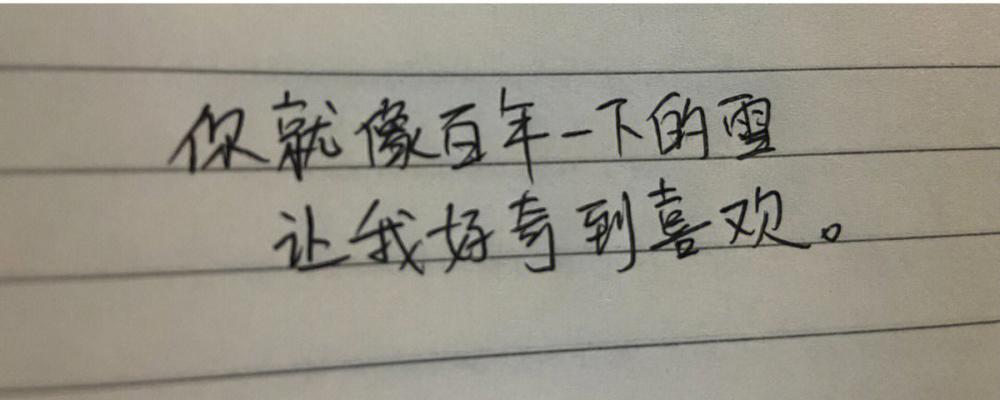 你就像百年一下的雪
让我好奇到喜欢。